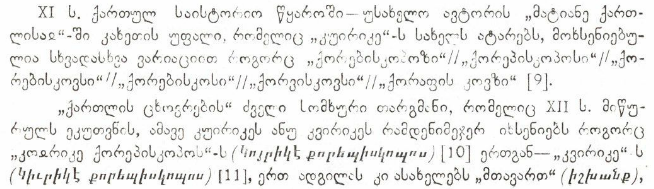 XI ს. ქართულ საისტორიო წყაროში—უსახელო ავტორის „მატიანე ქართ-
ლისაჲ“-ში კახეთის უფალი, რომელიც „კუირიკე“-ს სახელს ატარებს, მოხსენიებუ-
ლია სხვადასხვა ვარიაციით როგორც „ქორებისკოპოზი“//„ქორეპისკოპოსი“//„ქო-
რებისკოვსი“//„ქორებისკოსი“//„ქორვისკოვსი“//„ქორაფის კოვზი“ [9].
„ქართლის ცხოვრების“ ძველი სომხური თარგმანი, რომელიც XII ს. მიწუ-
რულს ეკუთვნის, ამავე კუირიკეს ანუ კვირიკეს რამდენიმეჯერ იხსენიებს როგორც
„კოჲრიკე ქორეპისკოპოს“-ს (կոյրիկէ քորեպիսկոպոս) [10] ერთგან—„კვირიკე“-ს
(կիւրիկէ քորեպիսկոպոս) [11], ერთ ადგილას კი ასახელებს „მთავართ“ (իշխանք),